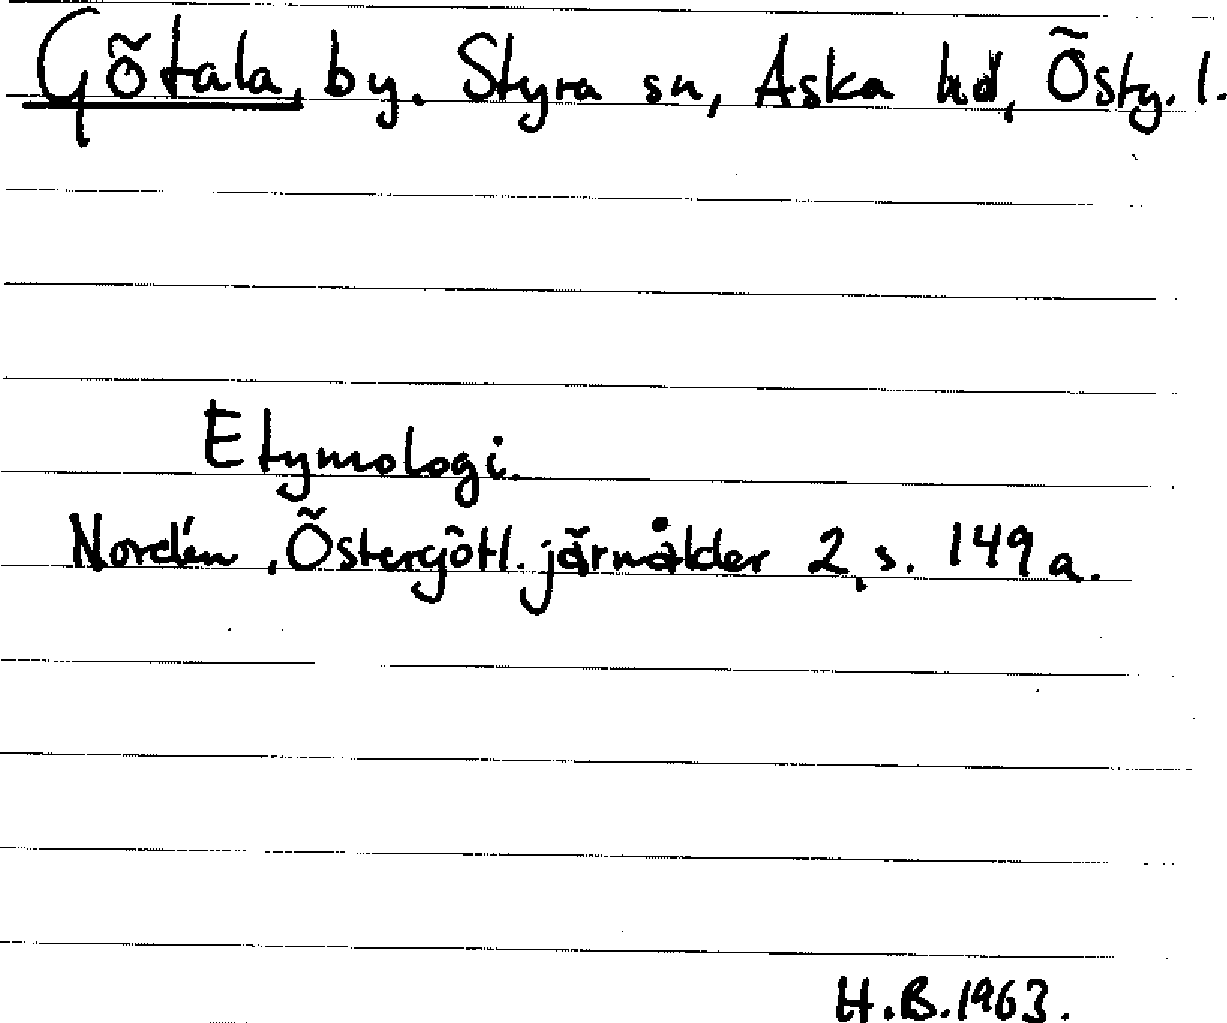 Götala, by. Styra sn, Aska hd, Östg. l.
Etymologi.
Nordén, Östergötl. järnålder 2, s. 149 a.
H.B. 1963.